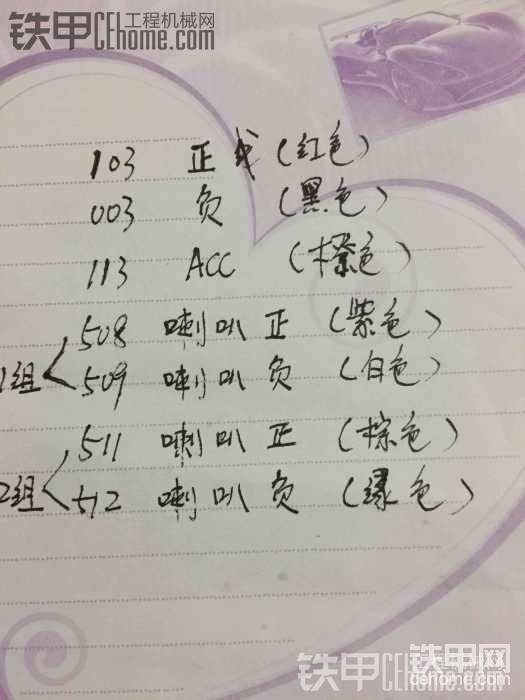 铁甲 工程机械网
CEhome.com
103 正 (红色)
003 负 (黑色)
113 ACC (色)
1组 508 喇叭 正 (紫色)
509 喇叭 负 (白色)
2组 511 喇叭 正 (棕色)
512 喇叭 负 (绿色)
铁甲网
cehome.com
铁甲CEhome